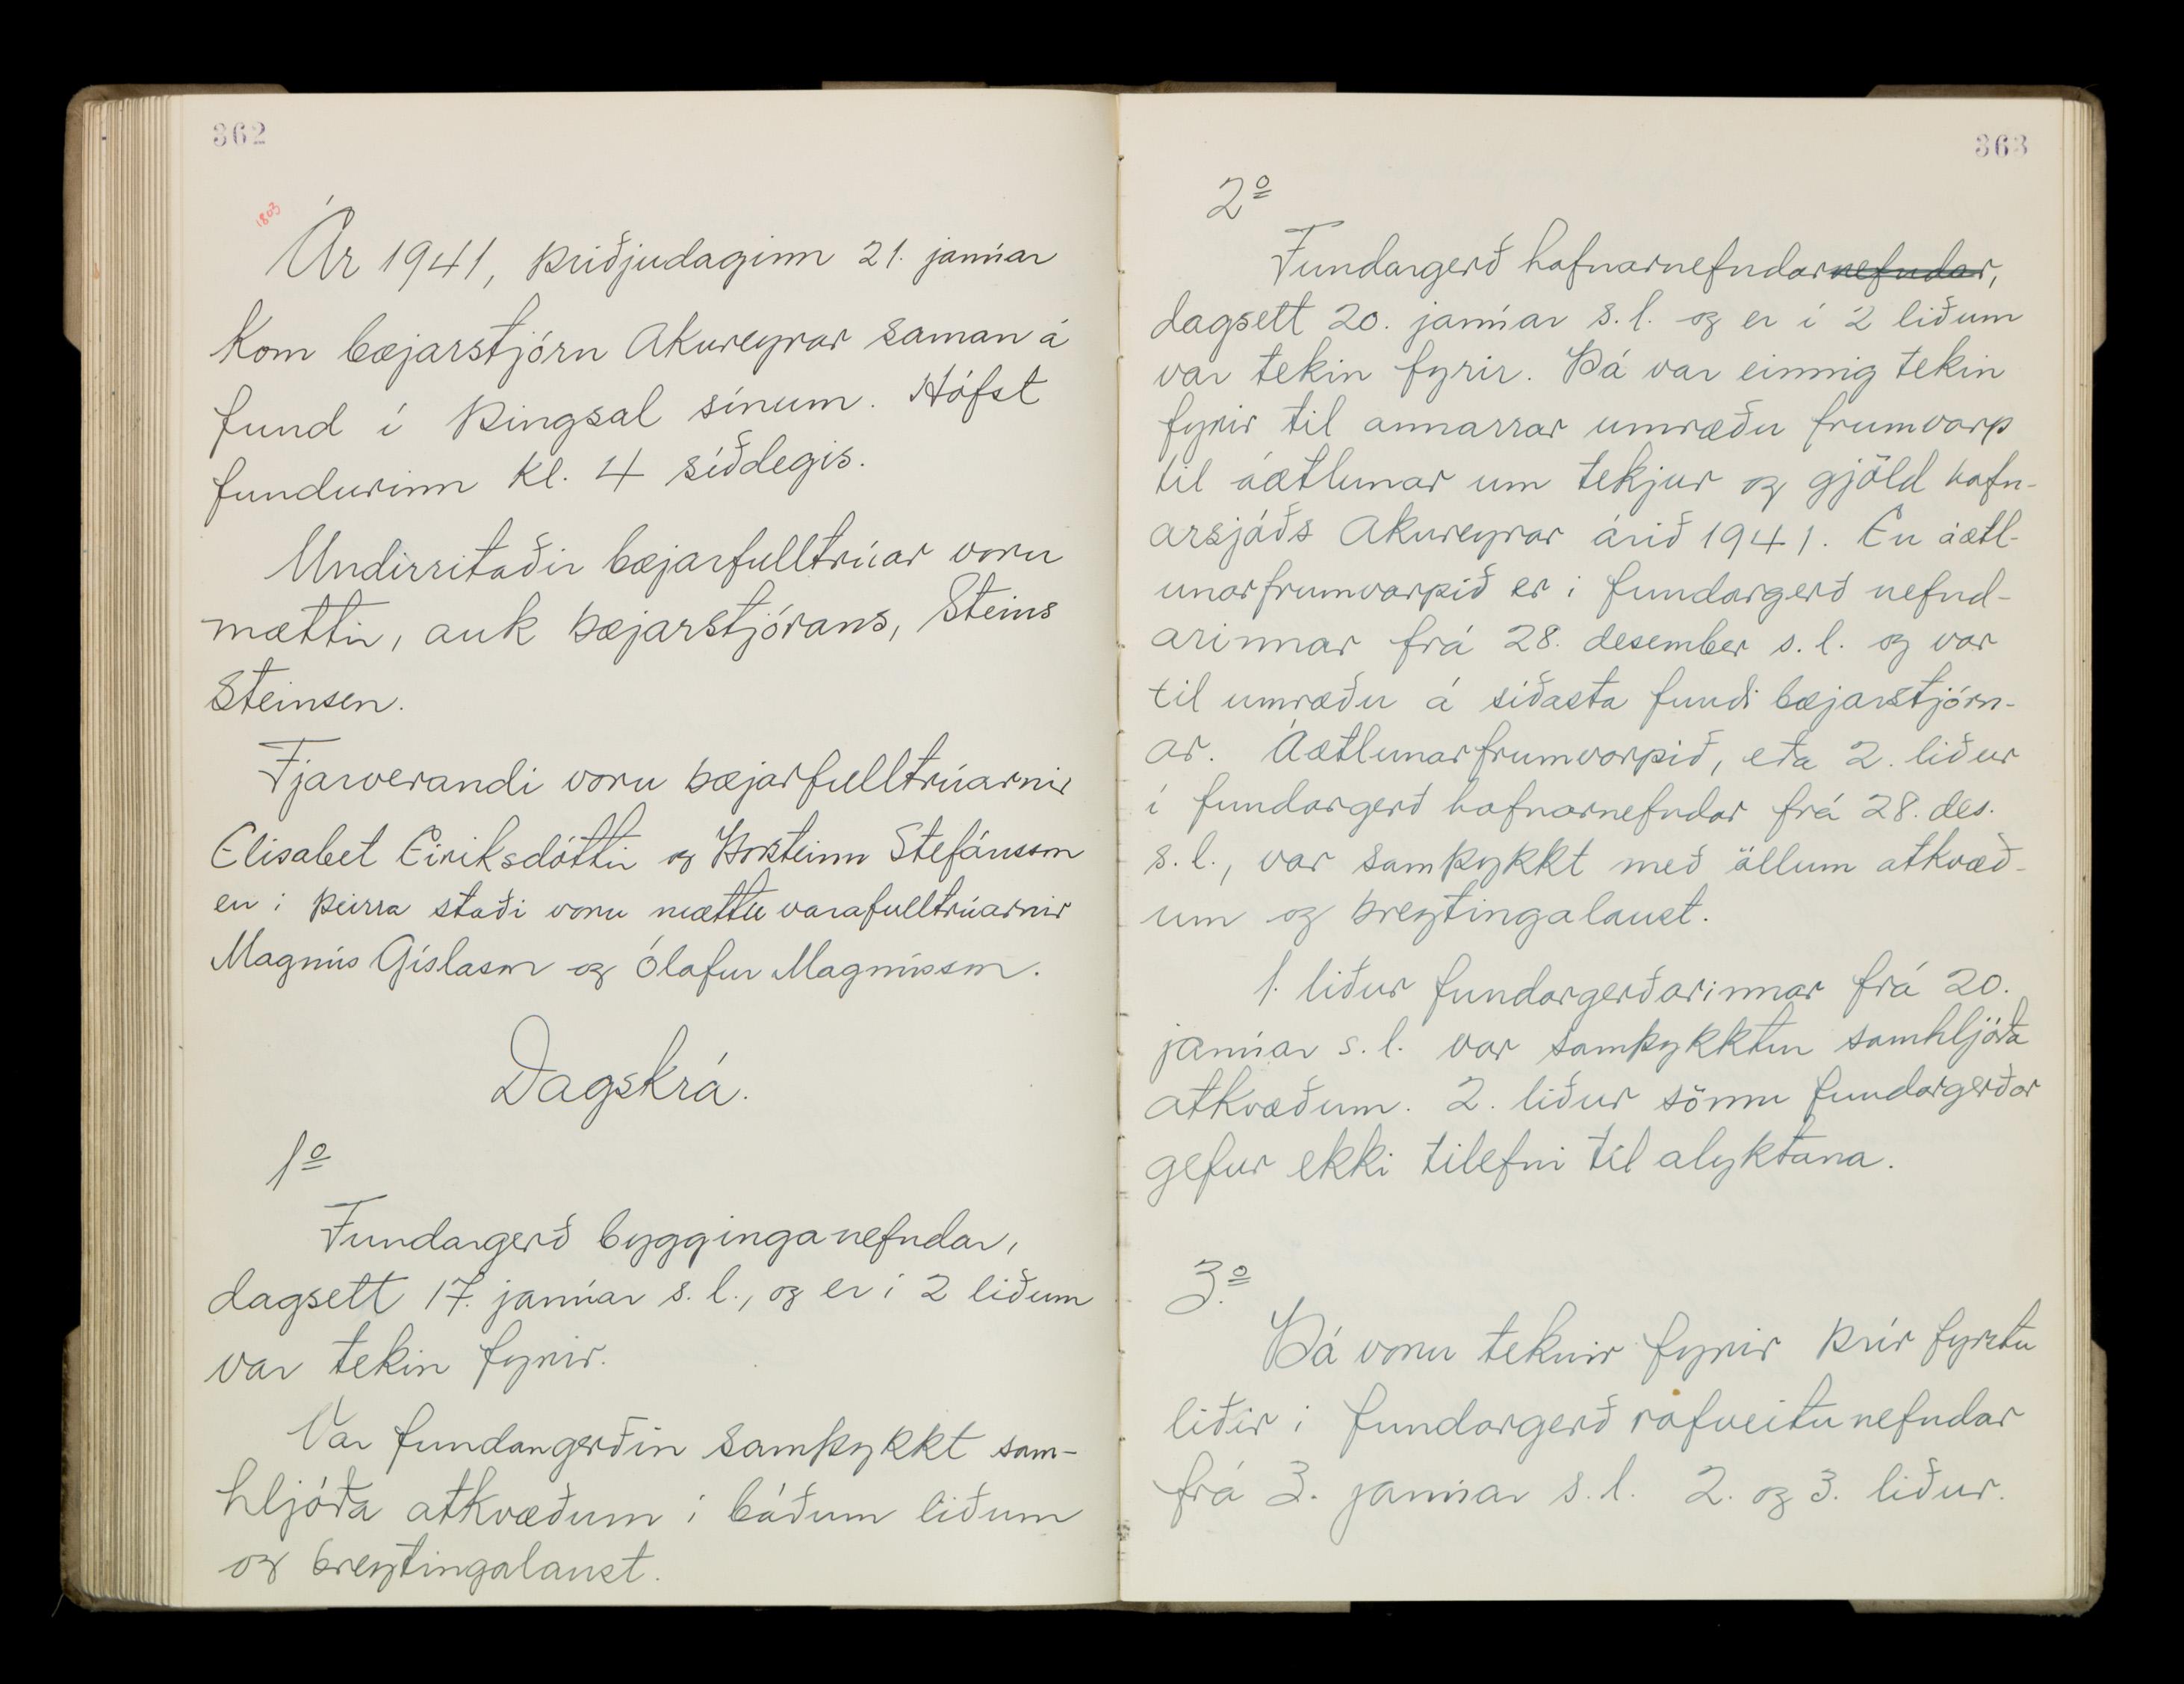 362
1803
Ár 1941, þriðjudaginn 21. janúar
kom bæjarstjórn Akureyrar saman á
fund í þingsal sínum. Hófst
fundurinn kl. 4 síðdegis.
Undirritaðir bæjarfulltrúar voru
mættir, auk bæjarstjórans, Steins
Steinsen.
Fjarverandi voru bæjarfulltrúarnir
Elisabet Eiriksdóttir og Þorsteinn Stefánsson
en í þeirra staði voru mættir varafulltrúarnir
Magnús Gíslason og Ólafur Magnússon.
Dagskrá.
1º
Fundargerð bygginganefndar,
dagsett 17. janúar s.l., og er í 2 liðum
var tekin fyrir.
Var fundargerðin samþykkt sam-
hljóða atkvæðum í báðum liðum
og breytingalaust.
363
2º
Fundargerð hafnarnefndarnefndar,
dagsett 20. janúar s.l. og er í 2 liðum
var tekin fyrir. Þá var einnig tekin
fyrir til annarrar umræðu frumvarp
til áætlunar um tekjur og gjöld hafn-
arsjóðs Akureyrar árið 1941. En áætl-
unarfrumvarpið er í fundargerð nefnd-
arinnar frá 28. desember s.l. og var
til umræðu á síðasta fundi bæjarstjórn-
ar. Áætlunarfrumvarpið, eða 2. liður
í fundargerð hafnarnefndar frá 28. des.
s.l., var samþykkt með öllum atkvæð-
um og breytingalaust.
1. liður fundargerðarinnar frá 20.
janúar s.l. var samþykktur samhljóða
atkvæðum. 2. liður sömu fundargerðar
gefur ekki tilefni til alyktana.
3.º
Þá voru teknir fyrir þrír fyrstu
liðir í fundargerð rafveitunefndar
frá 3. janúar s.l. 2. og 3. liður.